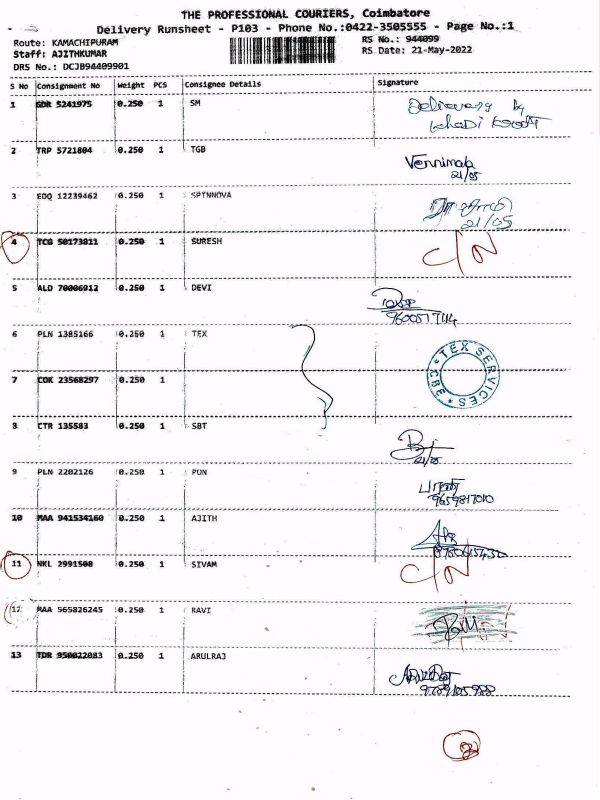 THE PROFESSIONAL COURIERS, Coimbatore
Delivery Runsheet - P103 - Phone No.:0422-3505555 - Page No.:1
Route: KAMACHIPURAM RS No.: 944099
Staff: AJITHKUMAR RS Date: 21-May-2022
DRS No.: DCJB94409901
S No Consignment No Weight PCS Consignee Details Signature
1 GDR 5241975 0.250 1 SM
by
2 TRP 5721804 0.250 1 TGB Vennimala
21/05
3 EDQ 12239462 0.250 1 SPINNOVA
21/05
4 TCG 50173811 0.250 1 SURESH C/N
5 ALD 70006912 0.250 1 DEVI
6 PLN 1385166 0.250 1 TEX
TEX SERVICES
CBE
7 COK 23568297 0.250 1
8 CTR 135583 0.250 1 SBT
9 PLN 2202126 0.250 1 PON
9659817010
10 MAA 941534160 0.250 1 AJITH
11 NKL 2991508 0.250 1 SIVAM C/N
12 MAA 565826245 0.250 1 RAVI
13 TDR 950022083 0.250 1 ARULRAJ
2